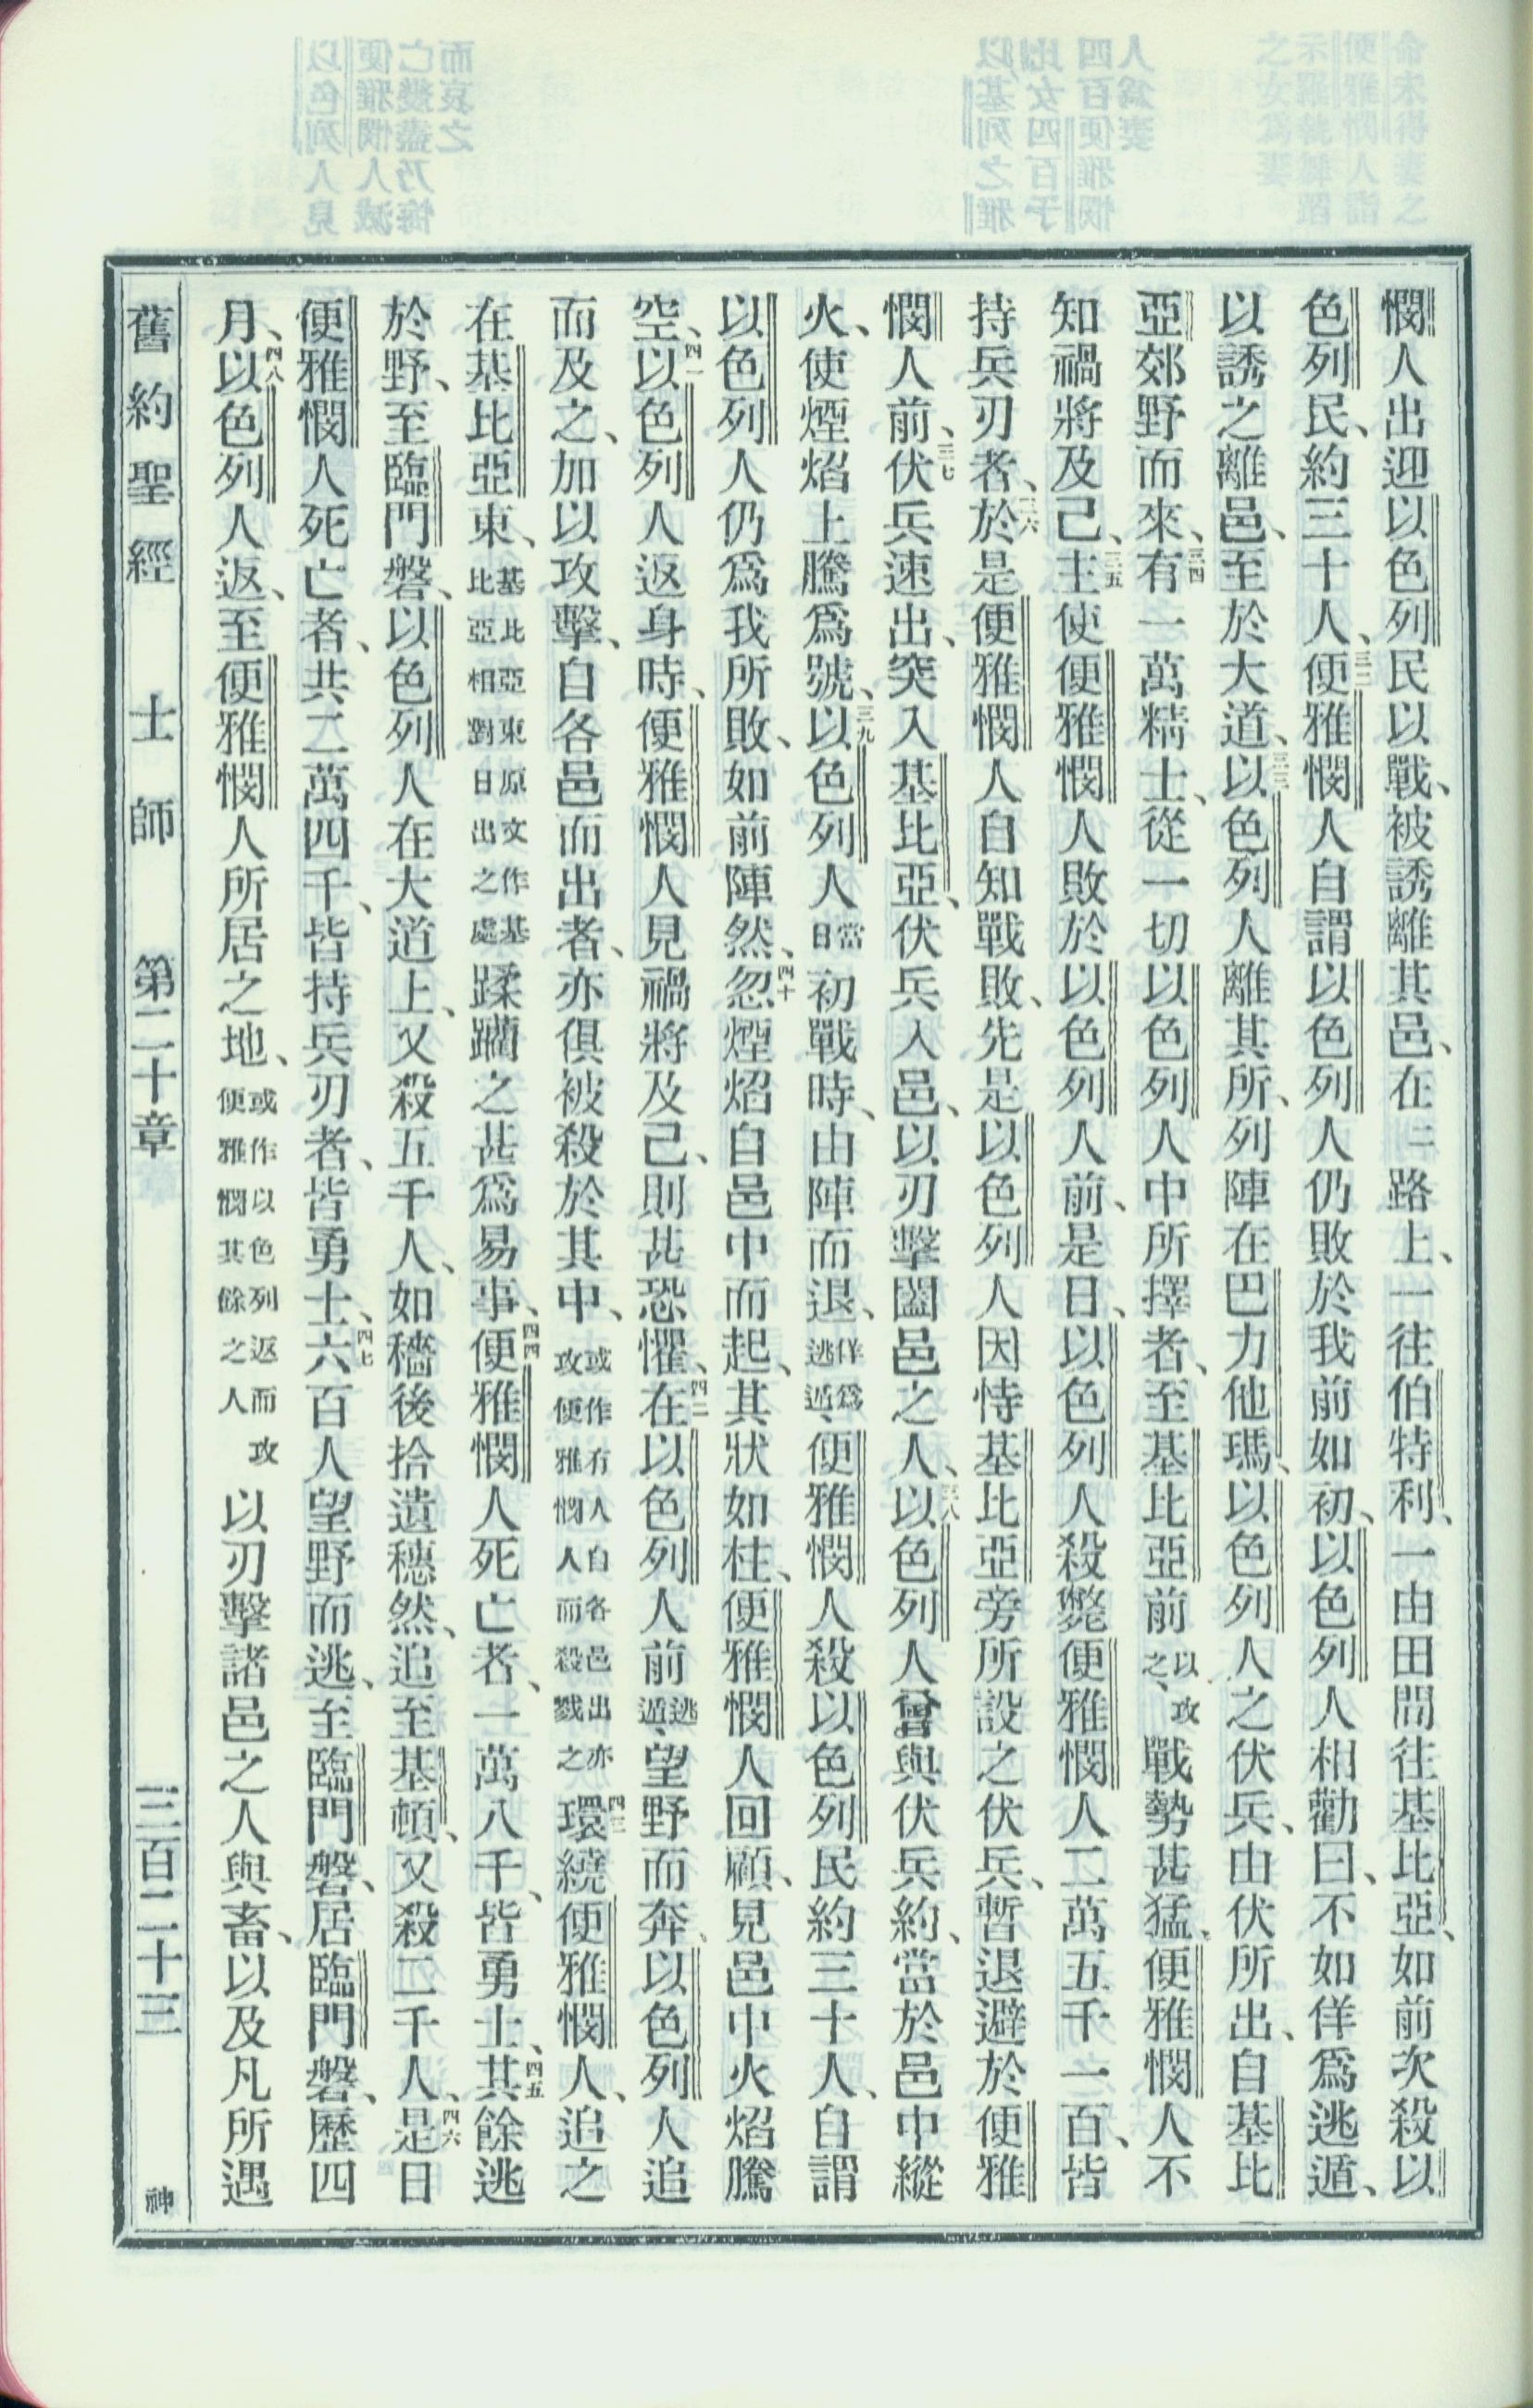 憫人出迎以色列民以戰、被誘離其邑、在二路上、一往伯特利、一由田間往基比亞、如前次殺以
色列民、約三十人、三二便雅憫人自謂以色列人仍敗於我前如初、以色列人相勸曰、不如佯爲逃遁、
以誘之離邑、至於大道、三三以色列人離其所、列陣在巴力他瑪、以色列人之伏兵、由伏所出、自基比
亞郊野而來、三四有一萬精士、從一切以色列人中所擇者、至基比亞前以攻之、戰勢甚猛、便雅憫人不
知禍將及己、三五主使便雅憫人敗於以色列人前、是日、以色列人殺斃便雅憫人二萬五千一百、皆
持兵刃者、三六於是便雅憫人自知戰敗、先是以色列人因恃基比亞旁所設之伏兵、暫退避於便雅
憫人前、三七伏兵速出、突入基比亞、伏兵入邑、以刃擊闔邑之人、三八以色列人曾與伏兵約、當於邑中縱
火、使煙焰上騰爲號、三九以色列人當日初戰時、由陣而退、佯爲逃遁、便雅憫人殺以色列民約三十人、自謂
以色列人仍爲我所敗、如前陣然、四十忽煙焰自邑中而起、其狀如柱、便雅憫人回顧、見邑中火焰騰
空、四一以色列人返身時、便雅憫人見禍將及己、則甚恐懼、四二在以色列人前逃遁、望野而奔、以色列人追
而及之、加以攻擊、自各邑而出者、亦俱被殺於其中、或作有人自各邑出亦攻便雅憫人而殺戮之四三環繞便雅憫人、追之
在基比亞東、基比亞東原文作基比亞相對日出之處蹂躪之甚爲易事、四四便雅憫人死亡者、一萬八千、皆勇士、四五其餘逃
於野、至臨門磐、以色列人在大道上、又殺五千人、如穡後拾遺穗然、追至基頓、又殺二千人、四六是日
便雅憫人死亡者、共二萬四千、皆持兵刃者、皆勇士、四七六百人望野而逃、至臨門磐、居臨門磐、歷四
月、四八以色列人返、至便雅憫人所居之地、或作以色列返而攻便雅憫其餘之人以刃擊諸邑之人與畜、以及凡所遇
舊約聖經 士師 第二十章 三百二十三 神